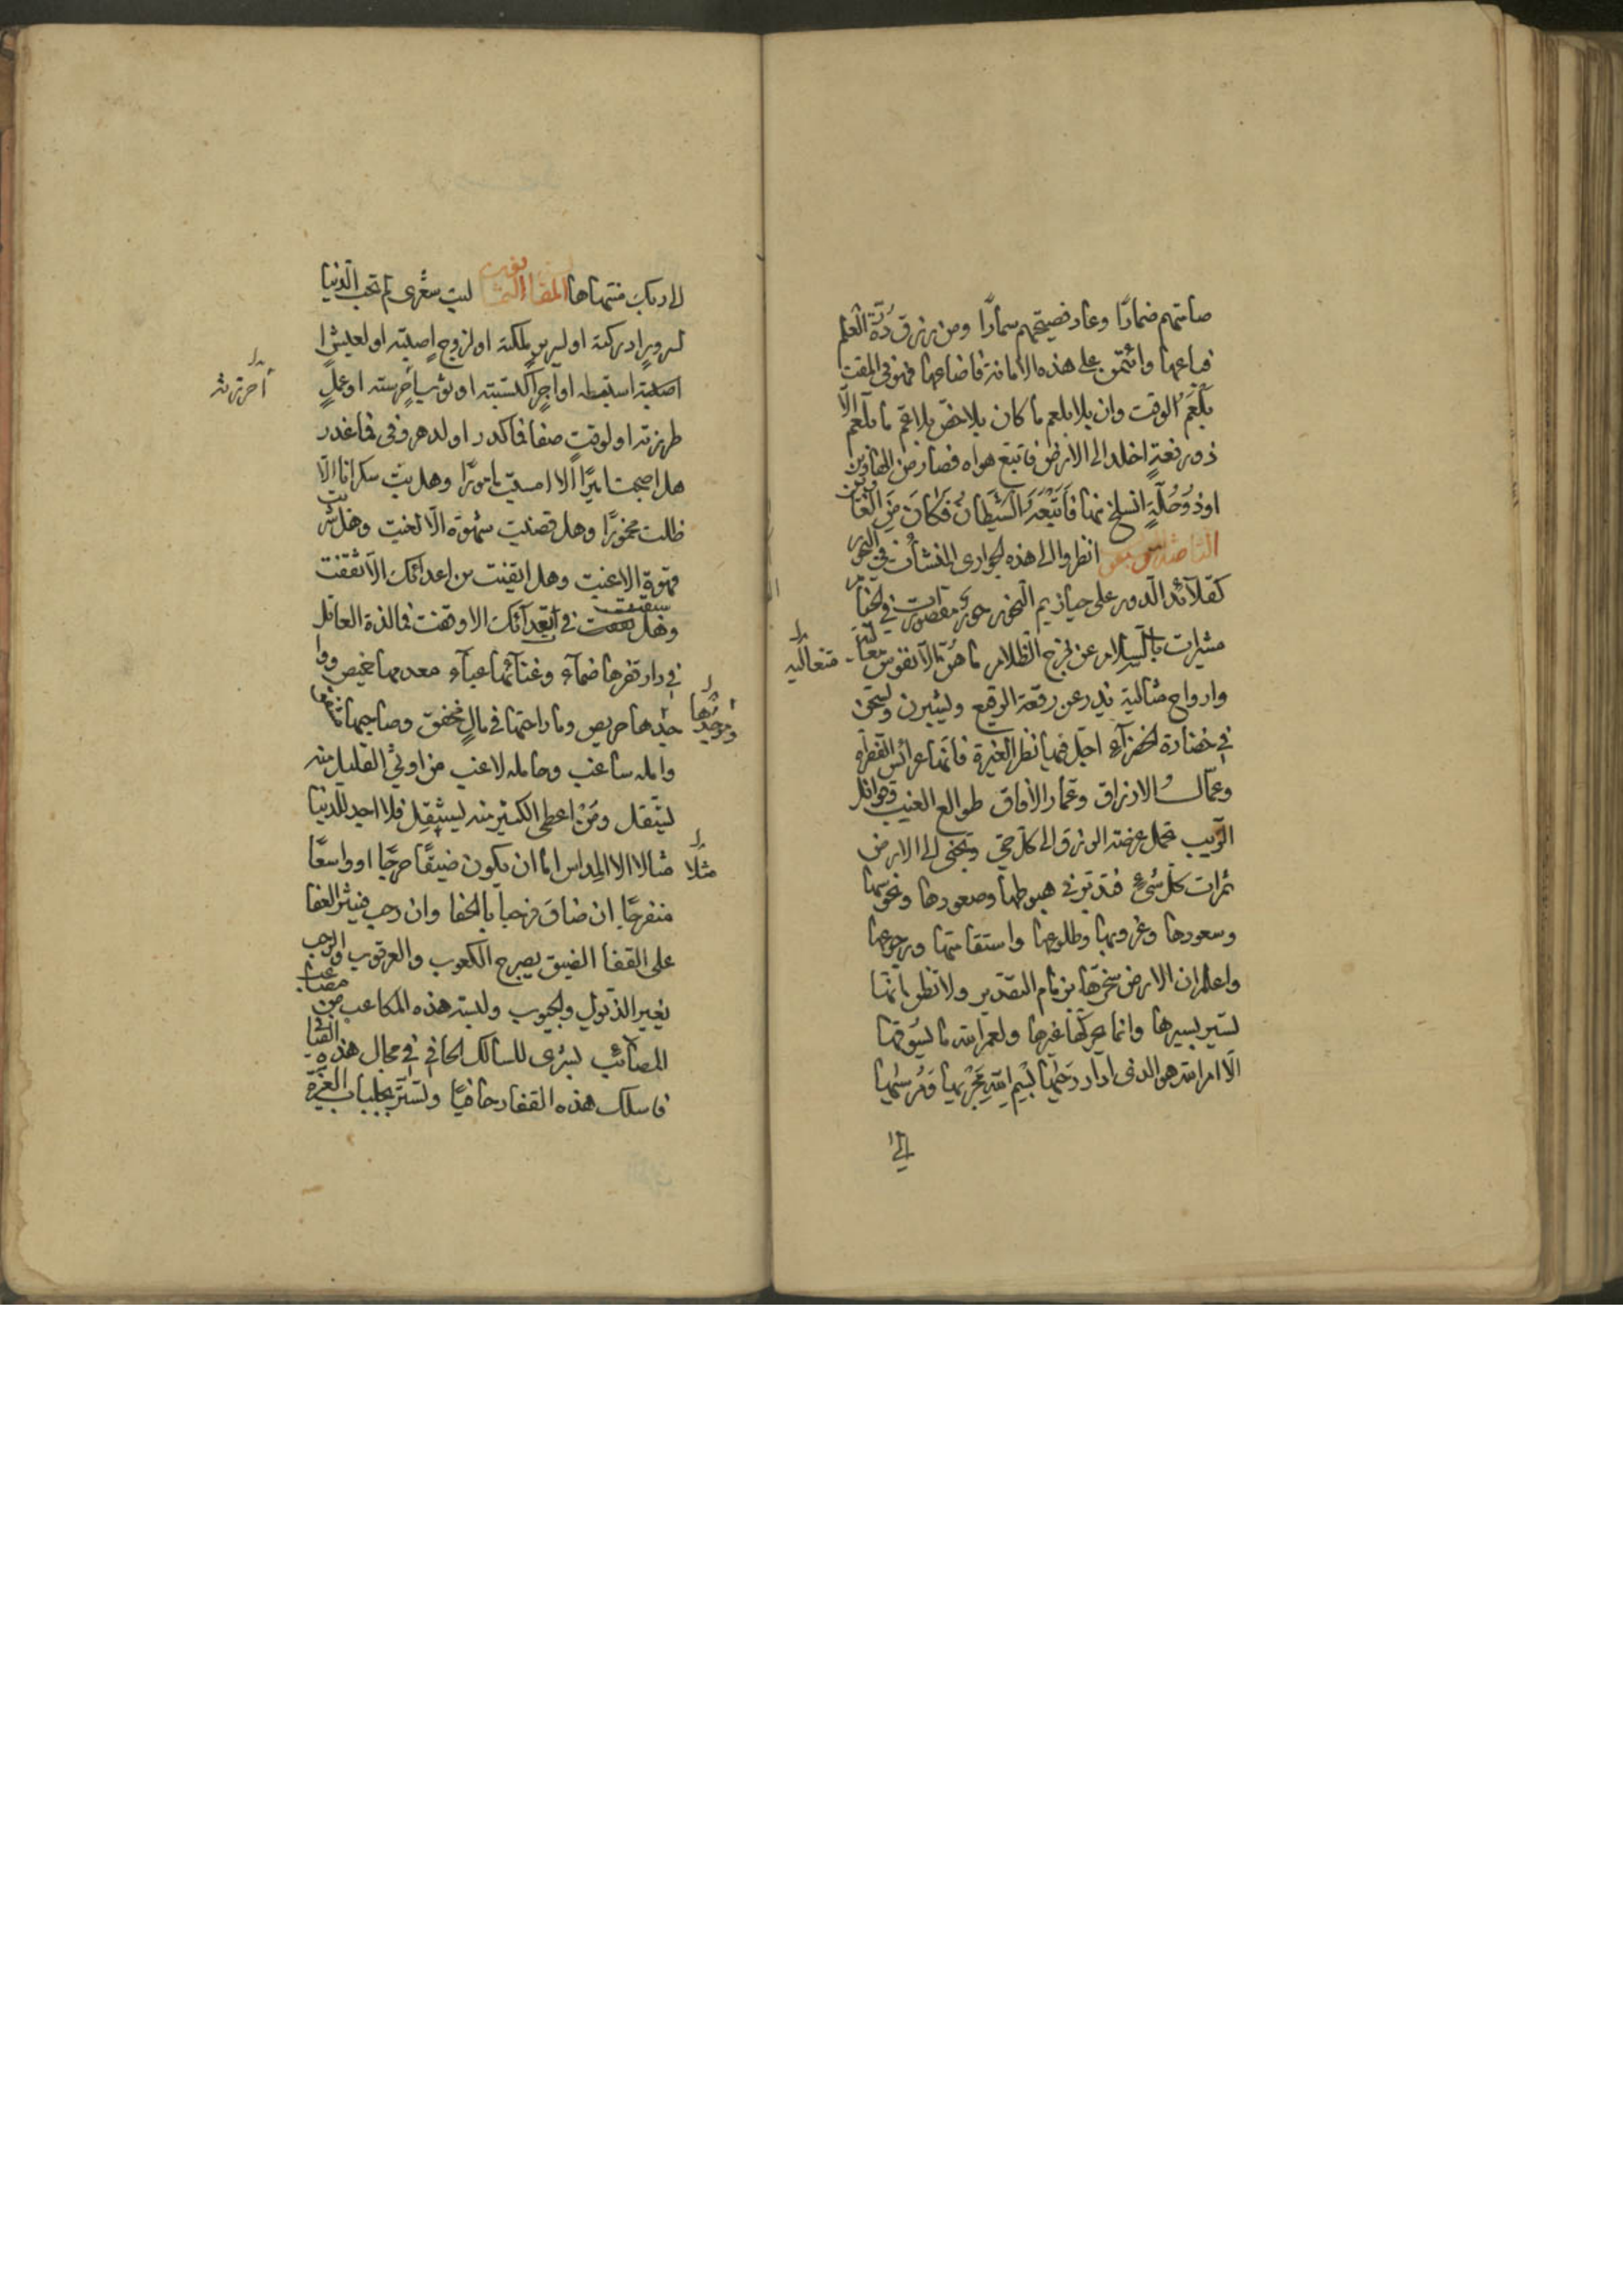 صامتهم ضمارًا وعاد فصيحتهم سمارًا ومن رزق درّة العلم
فباعها وائتمن على هذه الامانة فاضاعها فهو في المقت
بلعم الوقت وان بلا بلعم ما كان بلا خصّ بلا عمّ ما بلعم الّا
ذو رفعةٍ اخلد الى الارض فاتبع هواه فصار من الهاوين
اوذو حُلّةٍ انسلخ منها فَاَتْبَعَهُ الشَّيْطَانُ فَكَانَ مِنَ الْغَاوِين
انظروا الى هذه الجوارى المنشأت في البحور
كقلائد الدور على حيازيم النحور حور مقصورات في الخيام
مشيرات بالسلام عن لجج الظلام ما هنّ الا نفوس متعالية
وارواح مثالية يدرعن رقعة الرقيع ويشبرن ويسبحن
في خضارة الخضراء اجل فيها نظر العبرة فانها عرائس الفطرة
وعمّال الارزاق وعمّار الآفاق طوالع الغيب وقوابل
الريب تحمل عرضة الرزق الى كلّ حيّ وتجبى الى الارض
ثمرات كلّ شيء فتدبّر في هبوطها وصعودها ونحوسها
وسعودها وغروبها وطلوعها واستقامتها ورجوعها
واعلم ان الارض سخرتها بزمام التقدير ولا تظن بانها
تسير بسيرها وانما يحركها غيرها ولعمر الله ما يسوقها
الّا امر الله هو الذى ادار رحيها بِسْمِ اللهِ مَجْرٰيهَا وَمُرْسٰيهَا
الى
الى ربك منتهاها المقالة ليت شعرى لم تحب الدنيا
لسرورٍ ادركته او لسريرٍ ملكته او لزوجٍ اصبته او لعيشٍ
اصبته استبطه او اجرٍ اكتسبته او ثوب حرسته او عملٍ
احرزته
طرزته او لوقتٍ صفا فما كدر او لدهرٍ وفى فما غدر
هل اصبحت اميرًا الّا امسيت مامورًا وهل بتّ سكرانا الّا
ظللت مخمورًا وهل قضيت شهوة الّا لغيت وهل شربت
قهوة الا عنيت وهل ايقنت من اعدائك الا ثقفت
وهل في ابعدائك الا وقفت فما لذة العاقل
في دار قفرها ضماء وغناءها عباء معدمها غيص وواجدها
حريص وما راحتها في مالٍ مخفق وصاحبها
وامله ساغب وحامله لاغب من اوتي القليل منه
ليثقل ومن اعطى الكثير منه ليستقل فلا اجد للدنيا
مثلًا مثالا الا المداس اما ان يكون ضيقًا حرجًا او واسعًا
منفرجًا ان ضاق فرحبا بالحفا وان رحب فينثر العفا
على القفا الضيق يصرح الكعوب والعرقوب والرحب
يغبر الذيول والجيوب ولبسته هذه المكاعب من
المصائب بشرى للسالك الحافي في مجال هذه
فاسلك هذه القفار حافيًا وتستر بجلباب العزة